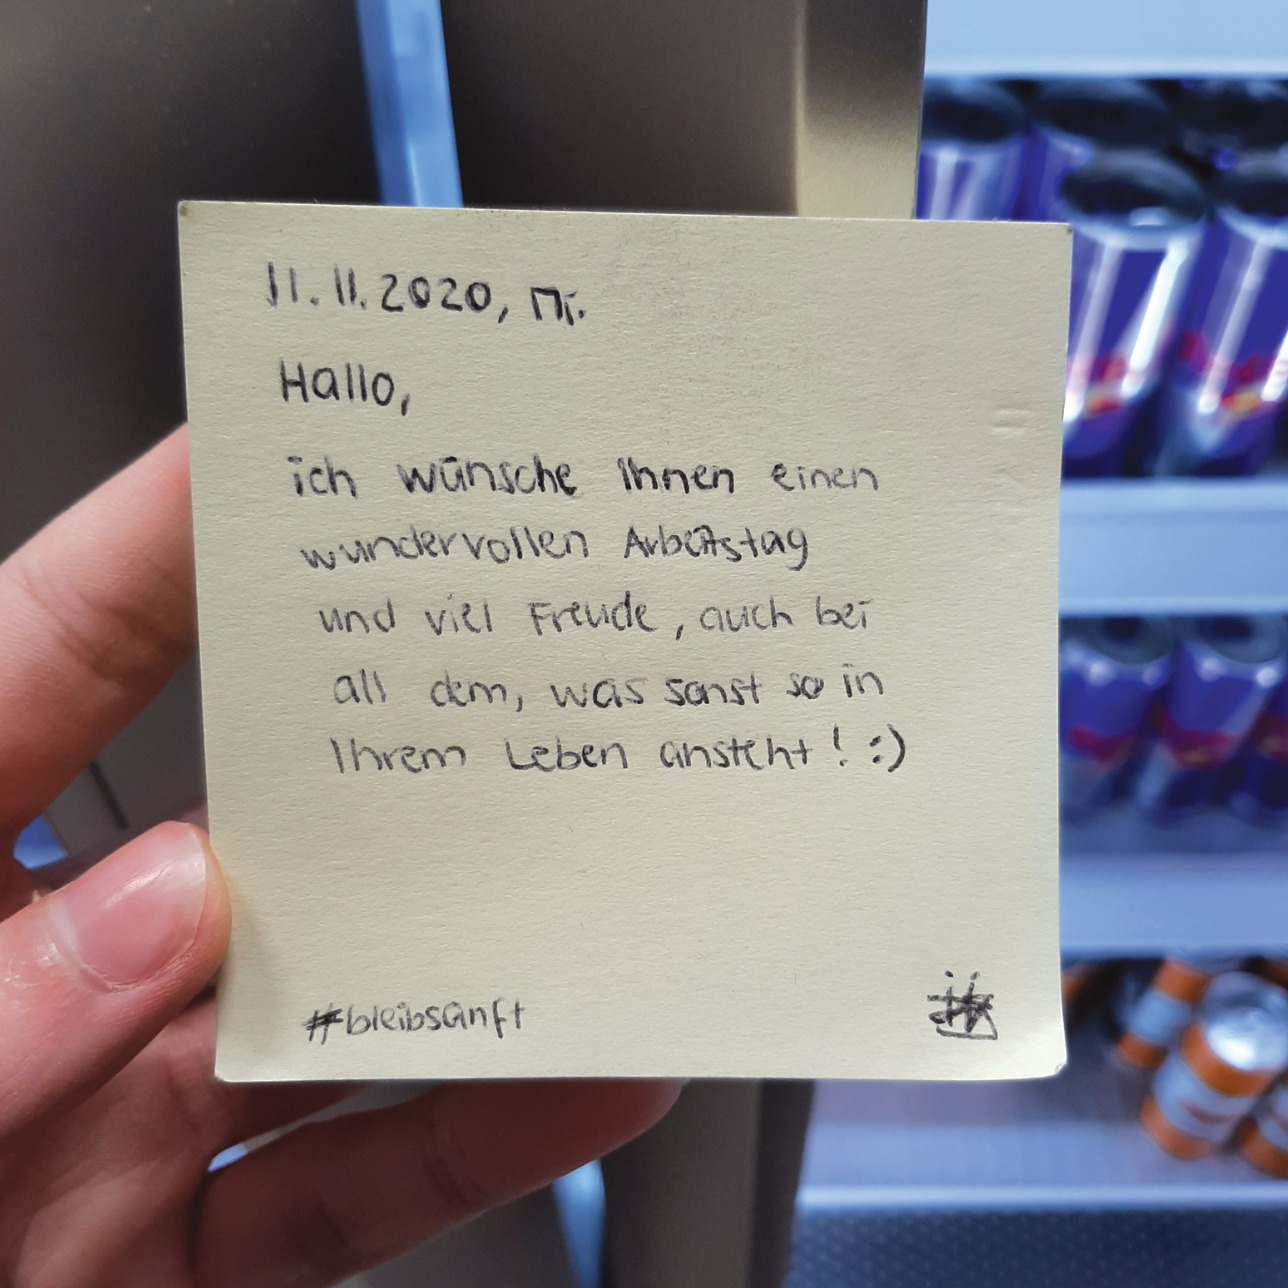 11.11.2020, Mi.
Hallo,
ich wünsche Ihnen einen
wundervollen Arbeitstag
und viel Freude, auch bei
all dem, was sonst so in
Ihrem Leben ansteht! :)
#bleibsanft